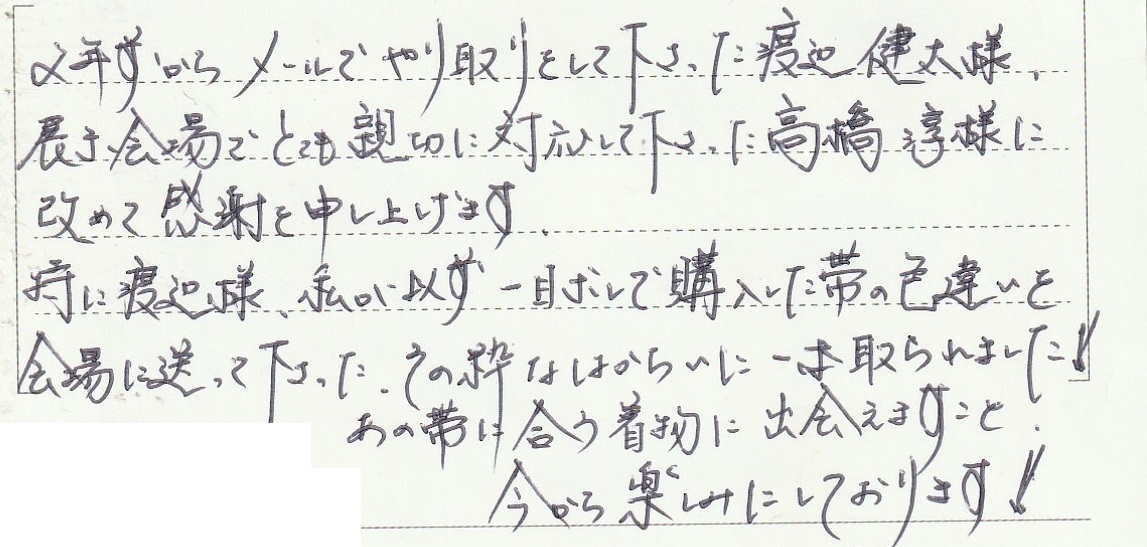 2年前からメールでやり取りをして下さった渡辺健太様、
展示会場でとても親切に対応して下さった高橋淳様に
改めて感謝を申し上げます。
特に渡辺様、私が以前一目ボレして購入した帯の色違いを
会場に送って下さった、その粋なはからいに一本取られました!!
あの帯に合う着物に出会えますこと、
今から楽しみにしております!!